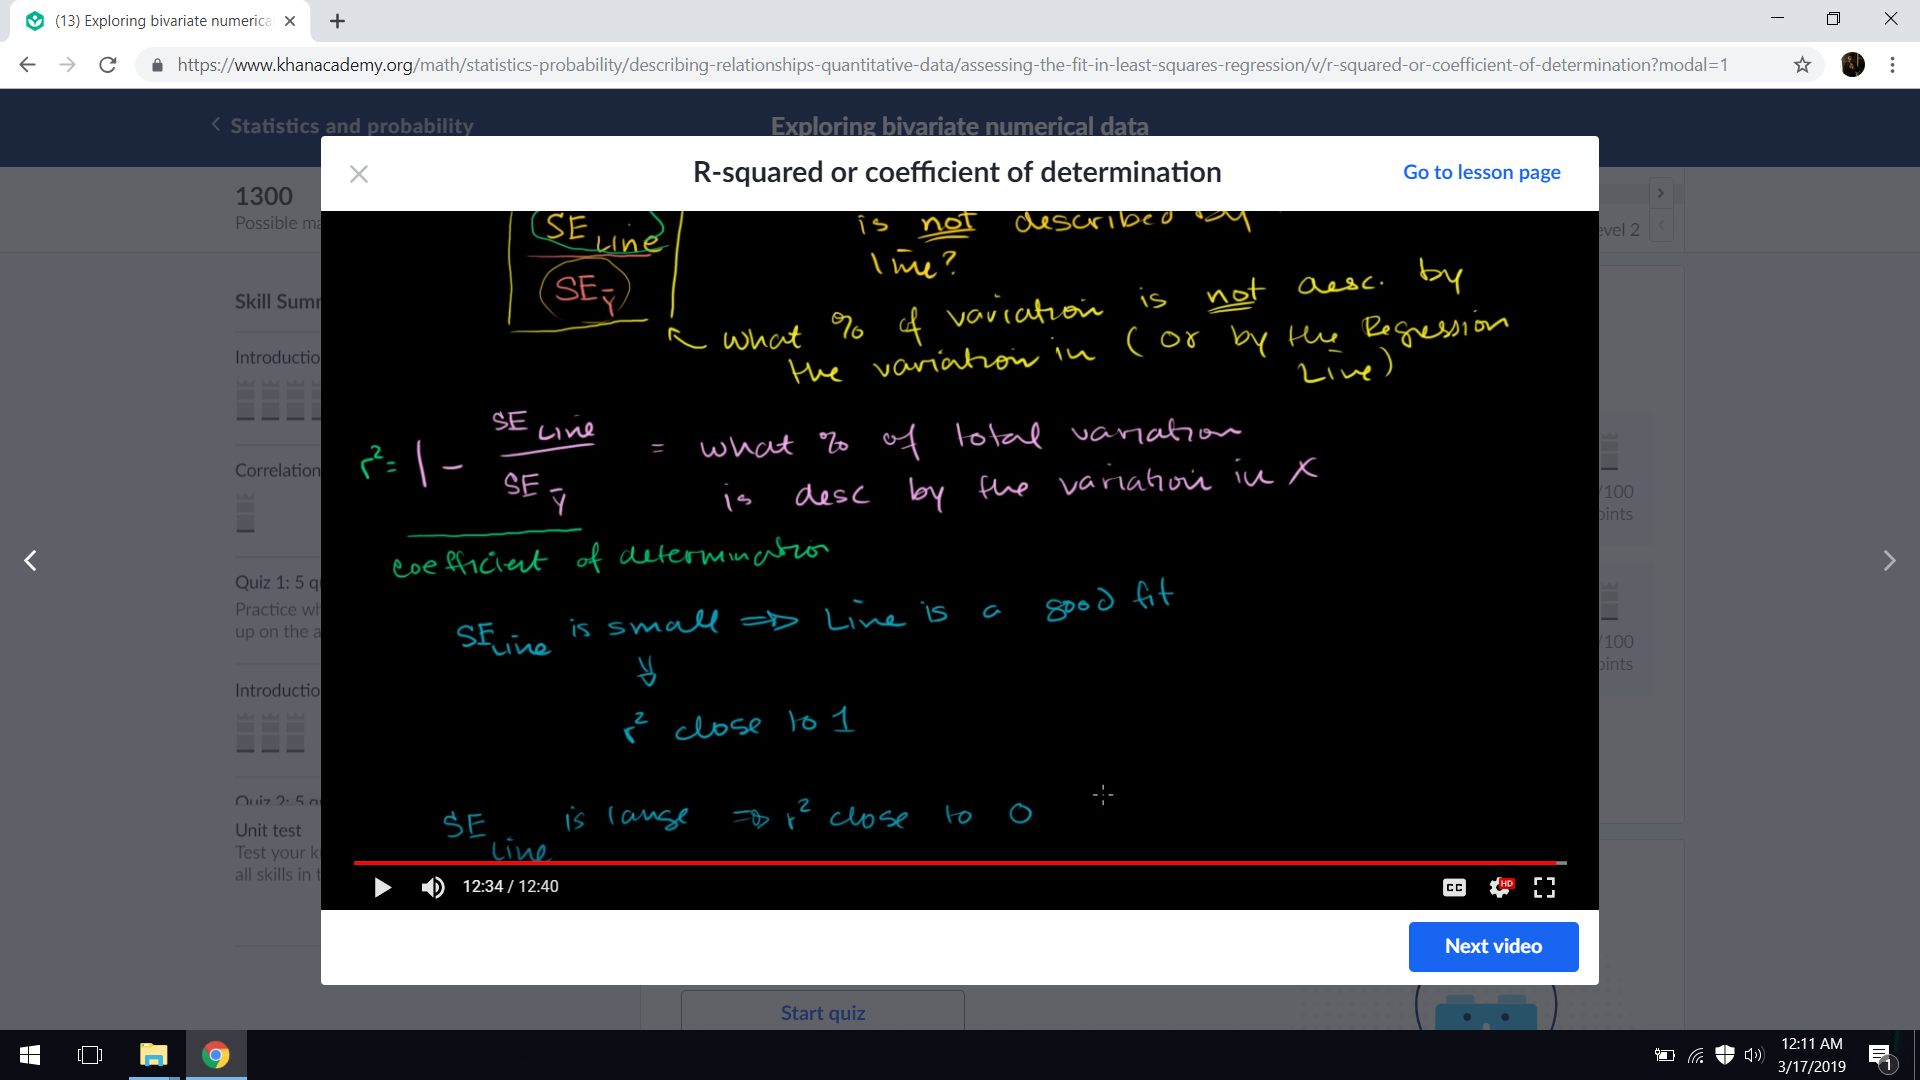 (13) Exploring bivariate numerica
https://www.khanacademy.org/math/statistics-probability/describing-relationships-quantitative-data/assessing-the-fit-in-least-squares-regression/v/r-squared-or-coefficient-of-determination?modal=1
Statistics and probability
Exploring bivariate numerical data
R-squared or coefficient of determination
Go to lesson page
1300
Possible ma
evel 2
Skill Summ
Introductio
Correlation
Quiz 1: 5 q
Practice wh
up on the a
Introductio
Quiz 2: 5 q
Unit test
Test your k
all skills in t
/100
oints
/100
oints
SE LINE
SE ȳ
is not described by
line?
what % of variation is not desc. by
the variation in (or by the Regression
Line)
r² = 1 - SE Line
SE ȳ
= what % of total variation
is desc by the variation in x
coefficient of determination
SE Line is small ⇒ Line is a good fit
r² close to 1
SE Line is large ⇒ r² close to 0
12:34 / 12:40
CC
HD
Next video
Start quiz
12:11 AM
3/17/2019
1